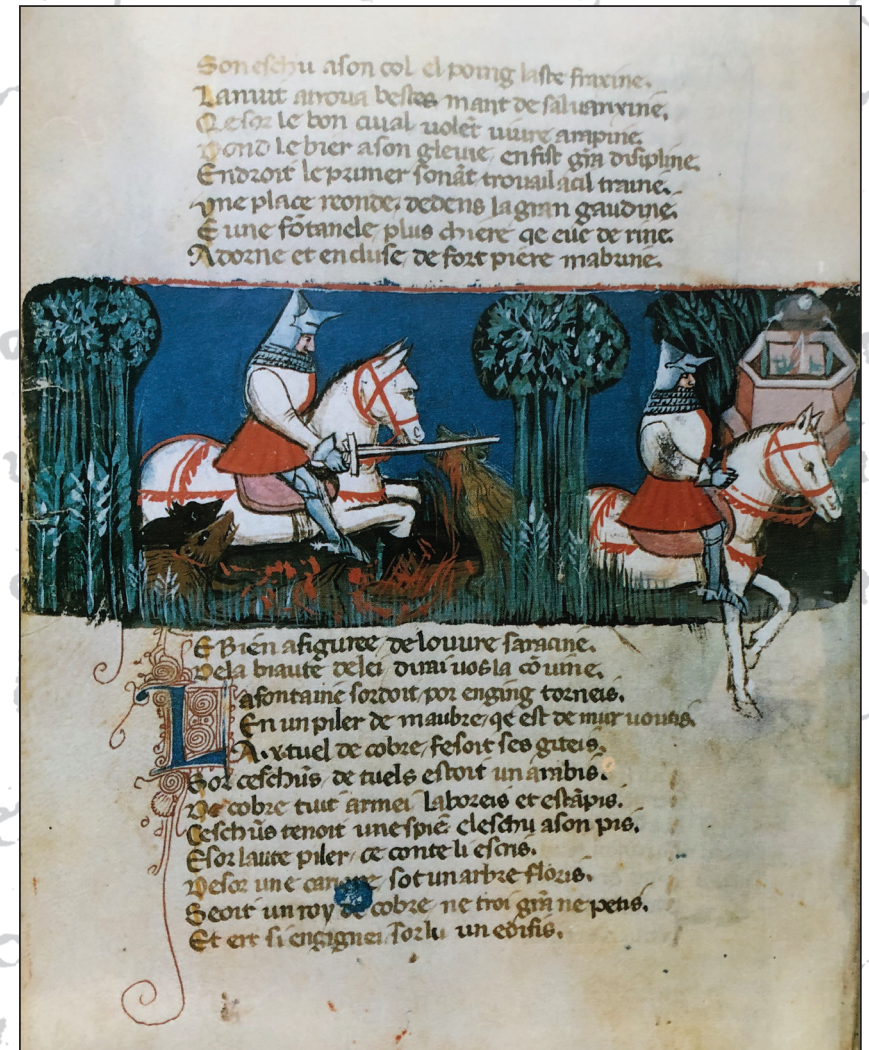 Son eschu a son col el poing laste fraxine.
La nuit atrova bestes mant de salvanxine,
Desor le bon cival volẽt vivre a rapine.
Dond le bier a son glevie, en fist grã disipline.
Endroit le primer sonãt trova il a cil traine.
Vne place reonde, dedens la gran gaudine.
E une fõtanele plus chiere qe eue de rine.
Adorne et encluse, de fort piere mabrine.
E Bien afiguree, de lovure saracine.
De la biaute de lei dirai vos la cõvine.
La fontaine sordoit, por enging torneis.
En un piler de maubre, qe est de mur voutis.
A .x. tuel de cobre, fesoit ses giteis.
Sor ceschũs de tuels estoit un arabis.
De cobre tuit armei laboreis et estãpis.
Ceschũs tenoit une spie el eschu a son pis.
E sor laute piler, ce conte li escris.
Desor une sot un arbre floris.
Seoit un roy de cobre ne troi grã ne petis.
Et ert si engignei sor lu un edifis.